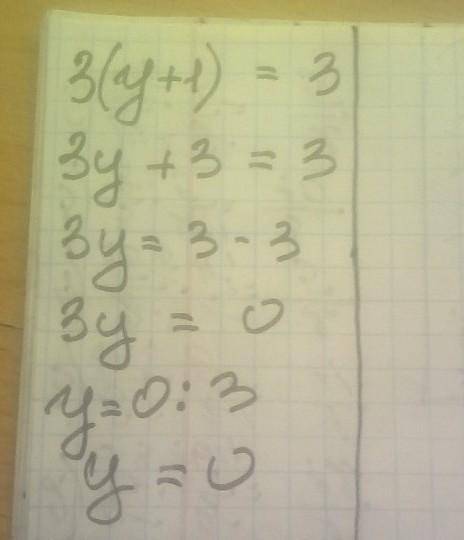 3(y+1) = 3
3y + 3 = 3
3y = 3 - 3
3y = 0
y = 0 : 3
y = 0